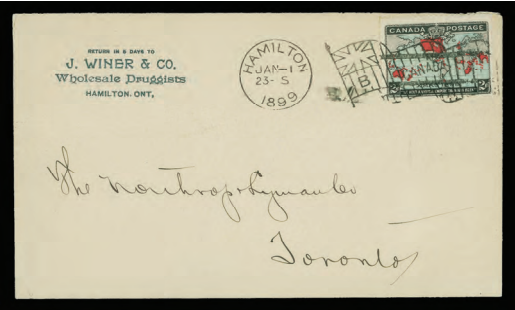 RETURN IN 5 DAYS TO
J. WINER & CO.
Wholesale Druggists
HAMILTON, ONT.
HAMILTON
JAN-1
23- S
1899
B
CANADA
CANADA POSTAGE
2c 2c
The Northrop & Lyman Co
Toronto